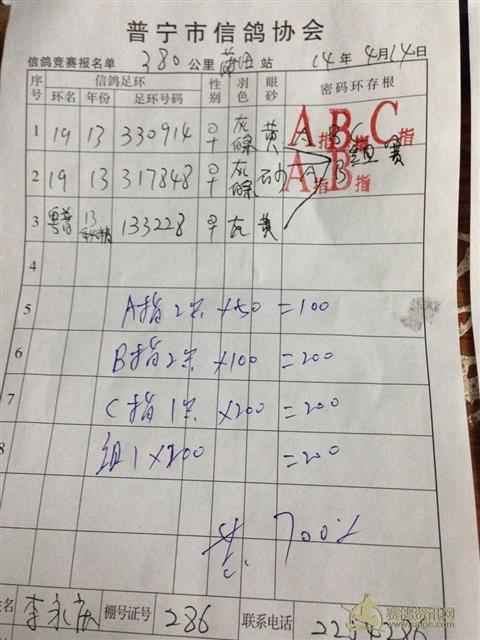 普宁市信鸽协会
信鸽竞赛报名单 380 公里 莆田 站 14年 4月14日
序号 信鸽足环 性别 羽色 眼砂 密码环存根
环名 年份 足环号码
1 19 13 330914 ♀ 灰 黄 A指 B指 C指 A B C
组赛
2 19 13 317848 ♀ 灰 砂 A指 B指 A B
3 粤普 13 133228 ♀ 灰 黄
4
5 A指2羽 ×50 =100
6 B指2羽 ×100 =200
7 C指1羽 ×200 =200
8 组1×200 =200
共 700
姓名 李永庆 棚号证号 286 联系电话
赛鸽资讯网
www.saige.com